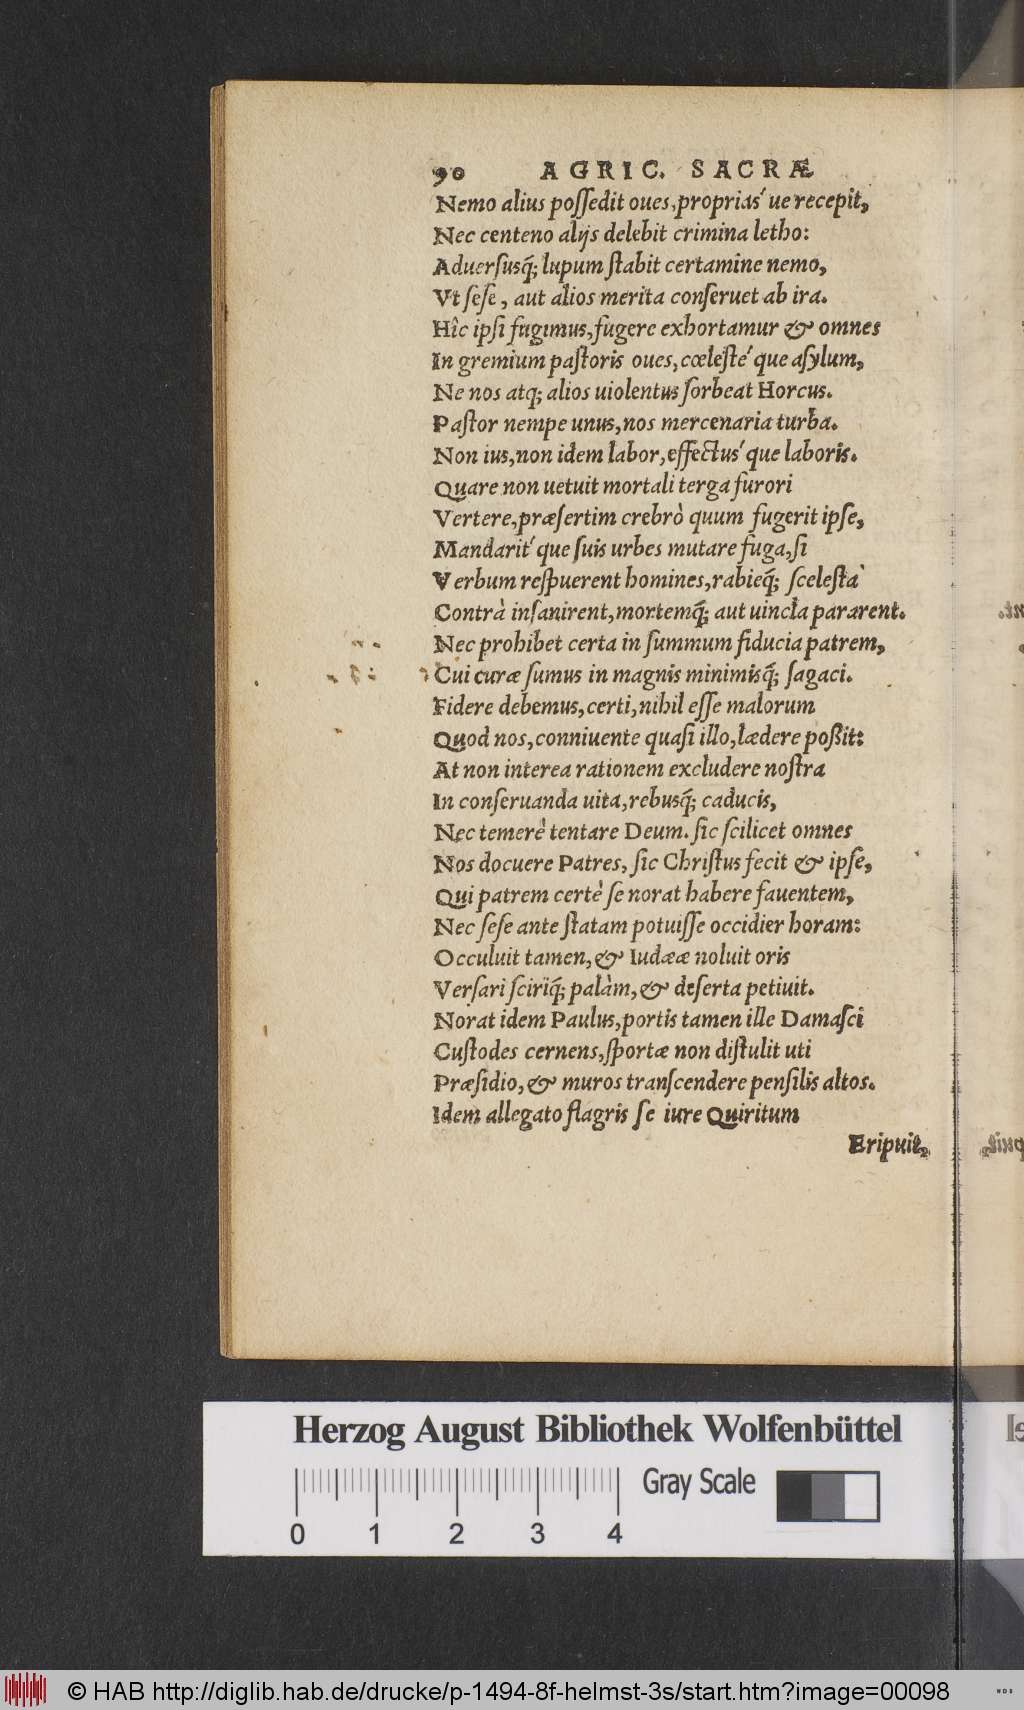 90 AGRIC. SACRÆ
Nemo alius poſſedit oues, propriaś ue recepit,
Nec centeno alijs delebit crimina letho:
Aduerſusq́; lupum ſtabit certamine nemo,
Vt ſeſe, aut alios merita conſeruet ab ira.
Hîc ipſi fugimus, fugere exhortamur & omnes
In gremium paſtoris oues, cœleſté que aſylum,
Ne nos atq; alios uiolentus ſorbeat Horcus.
Paſtor nempe unus, nos mercenaria turba.
Non ius, non idem labor, effectuś que laboris.
Quare non uetuit mortali terga furori
Vertere, præſertim crebrò quum fugerit ipſe,
Mandarit́ que ſuis urbes mutare fuga, ſi
Verbum reſpuerent homines, rabieq́; ſceleſta
Contrà inſanirent, mortemq́; aut uincla pararent.
Nec prohibet certa in ſummum fiducia patrem,
Cui curæ ſumus in magnis minimisq́; ſagaci.
Fidere debemus, certi, nihil eſſe malorum
Quod nos, conniuente quaſi illo, lædere poßit:
At non interea rationem excludere noſtra
In conſeruanda uita, rebusq́; caducis,
Nec temerè tentare Deum. ſic ſcilicet omnes
Nos docuere Patres, ſic Chriſtus fecit & ipſe,
Qui patrem certè ſe norat habere fauentem,
Nec ſeſe ante ſtatam potuiſſe occidier horam:
Occuluit tamen, & Iudææ noluit oris
Verſari ſciriq́; palàm, & deſerta petiuit.
Norat idem Paulus, portis tamen ille Damaſci
Cuſtodes cernens, ſportæ non diſtulit uti
Præſidio, & muros tranſcendere penſilis altos.
Idem allegato flagris ſe iure Quiritum
Eripuit,
Herzog August Bibliothek Wolfenbüttel
Gray Scale
0 1 2 3 4
© HAB http://diglib.hab.de/drucke/p-1494-8f-helmst-3s/start.htm?image=00098